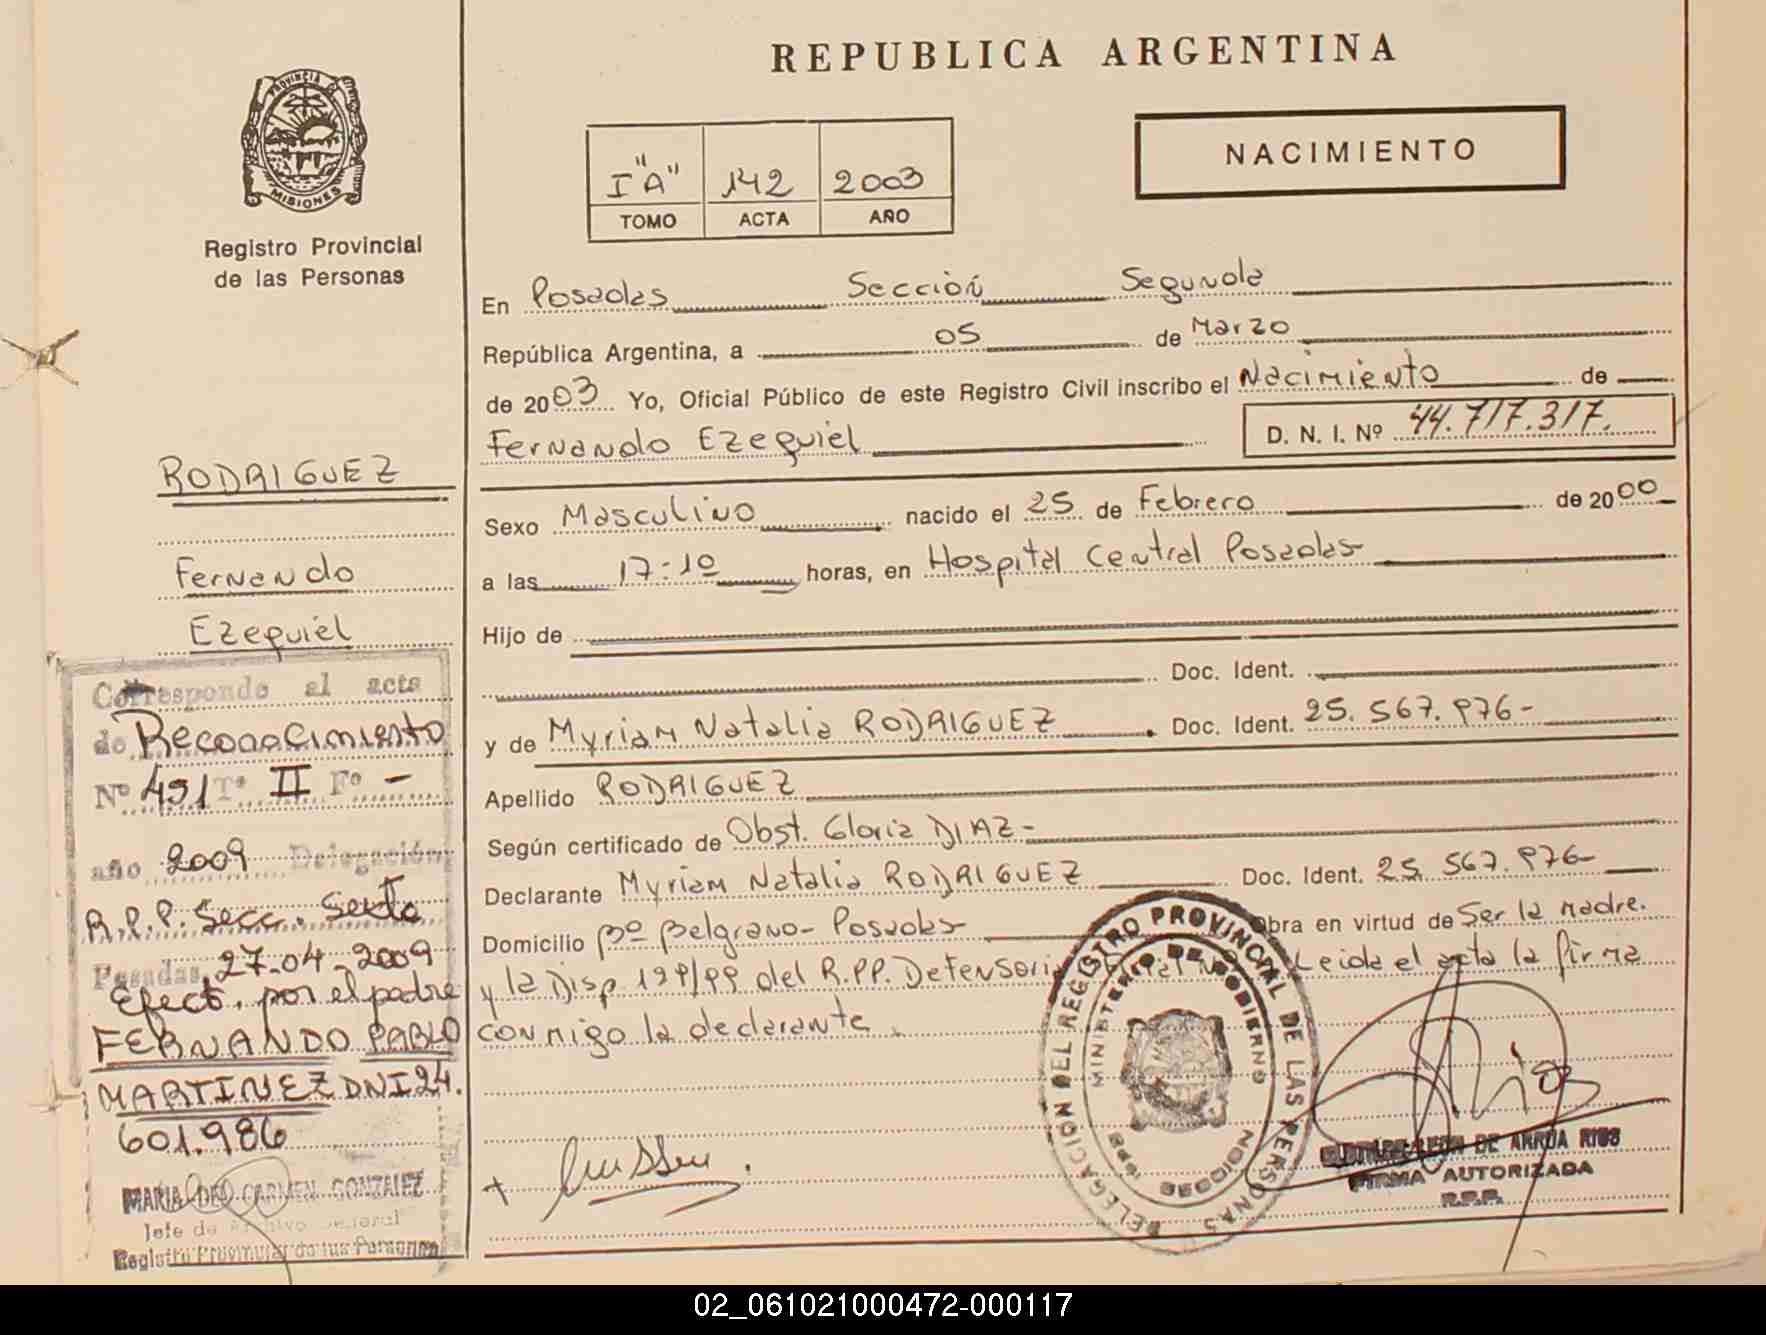 REPUBLICA ARGENTINA
PROVINCIA
MISIONES
Registro Provincial
de las Personas
NACIMIENTO
I "A" 142 2003
TOMO ACTA AÑO
En Posadas Sección Segunda
República Argentina, a 05 de Marzo
de 2003 Yo, Oficial Público de este Registro Civil inscribo el Nacimiento de
Fernando Ezequiel D. N. I. Nº 44.717.317.
Sexo Masculino nacido el 25 de Febrero de 2000
a las 17:10 horas, en Hospital Central Posadas
Hijo de
Doc. Ident.
y de Myriam Natalia RODRIGUEZ Doc. Ident. 25.567.976-
Apellido RODRIGUEZ
Según certificado de Obst. Gloria DIAZ-
Declarante Myriam Natalia RODRIGUEZ Doc. Ident. 25.567.976-
Domicilio Bº Belgrano- Posadas Obra en virtud de Ser la madre.
y la Disp. 199/99 del R.P.P. Defensoria Leida el acta la firma
conmigo la declarante
RODRIGUEZ
Fernando
Ezequiel
Corresponde al acta
de Reconocimiento
Nº 491 Tº II Fº -
año 2009 Delegación
R.P.P. Secc. Sexta
Posadas, 27-04-2009
Efect. por el padre
FERNANDO PABLO
MARTINEZ DNI 24.
601.986
MARIA DEL CARMEN GONZALEZ
Jefe de Archivo General
Registro Provincial de las Personas
DELEGACION DEL REGISTRO PROVINCIAL DE LAS PERSONAS
MINISTERIO DE GOBIERNO
DE ARRUA RIOS
FIRMA AUTORIZADA
R.P.P.
02_061021000472-000117